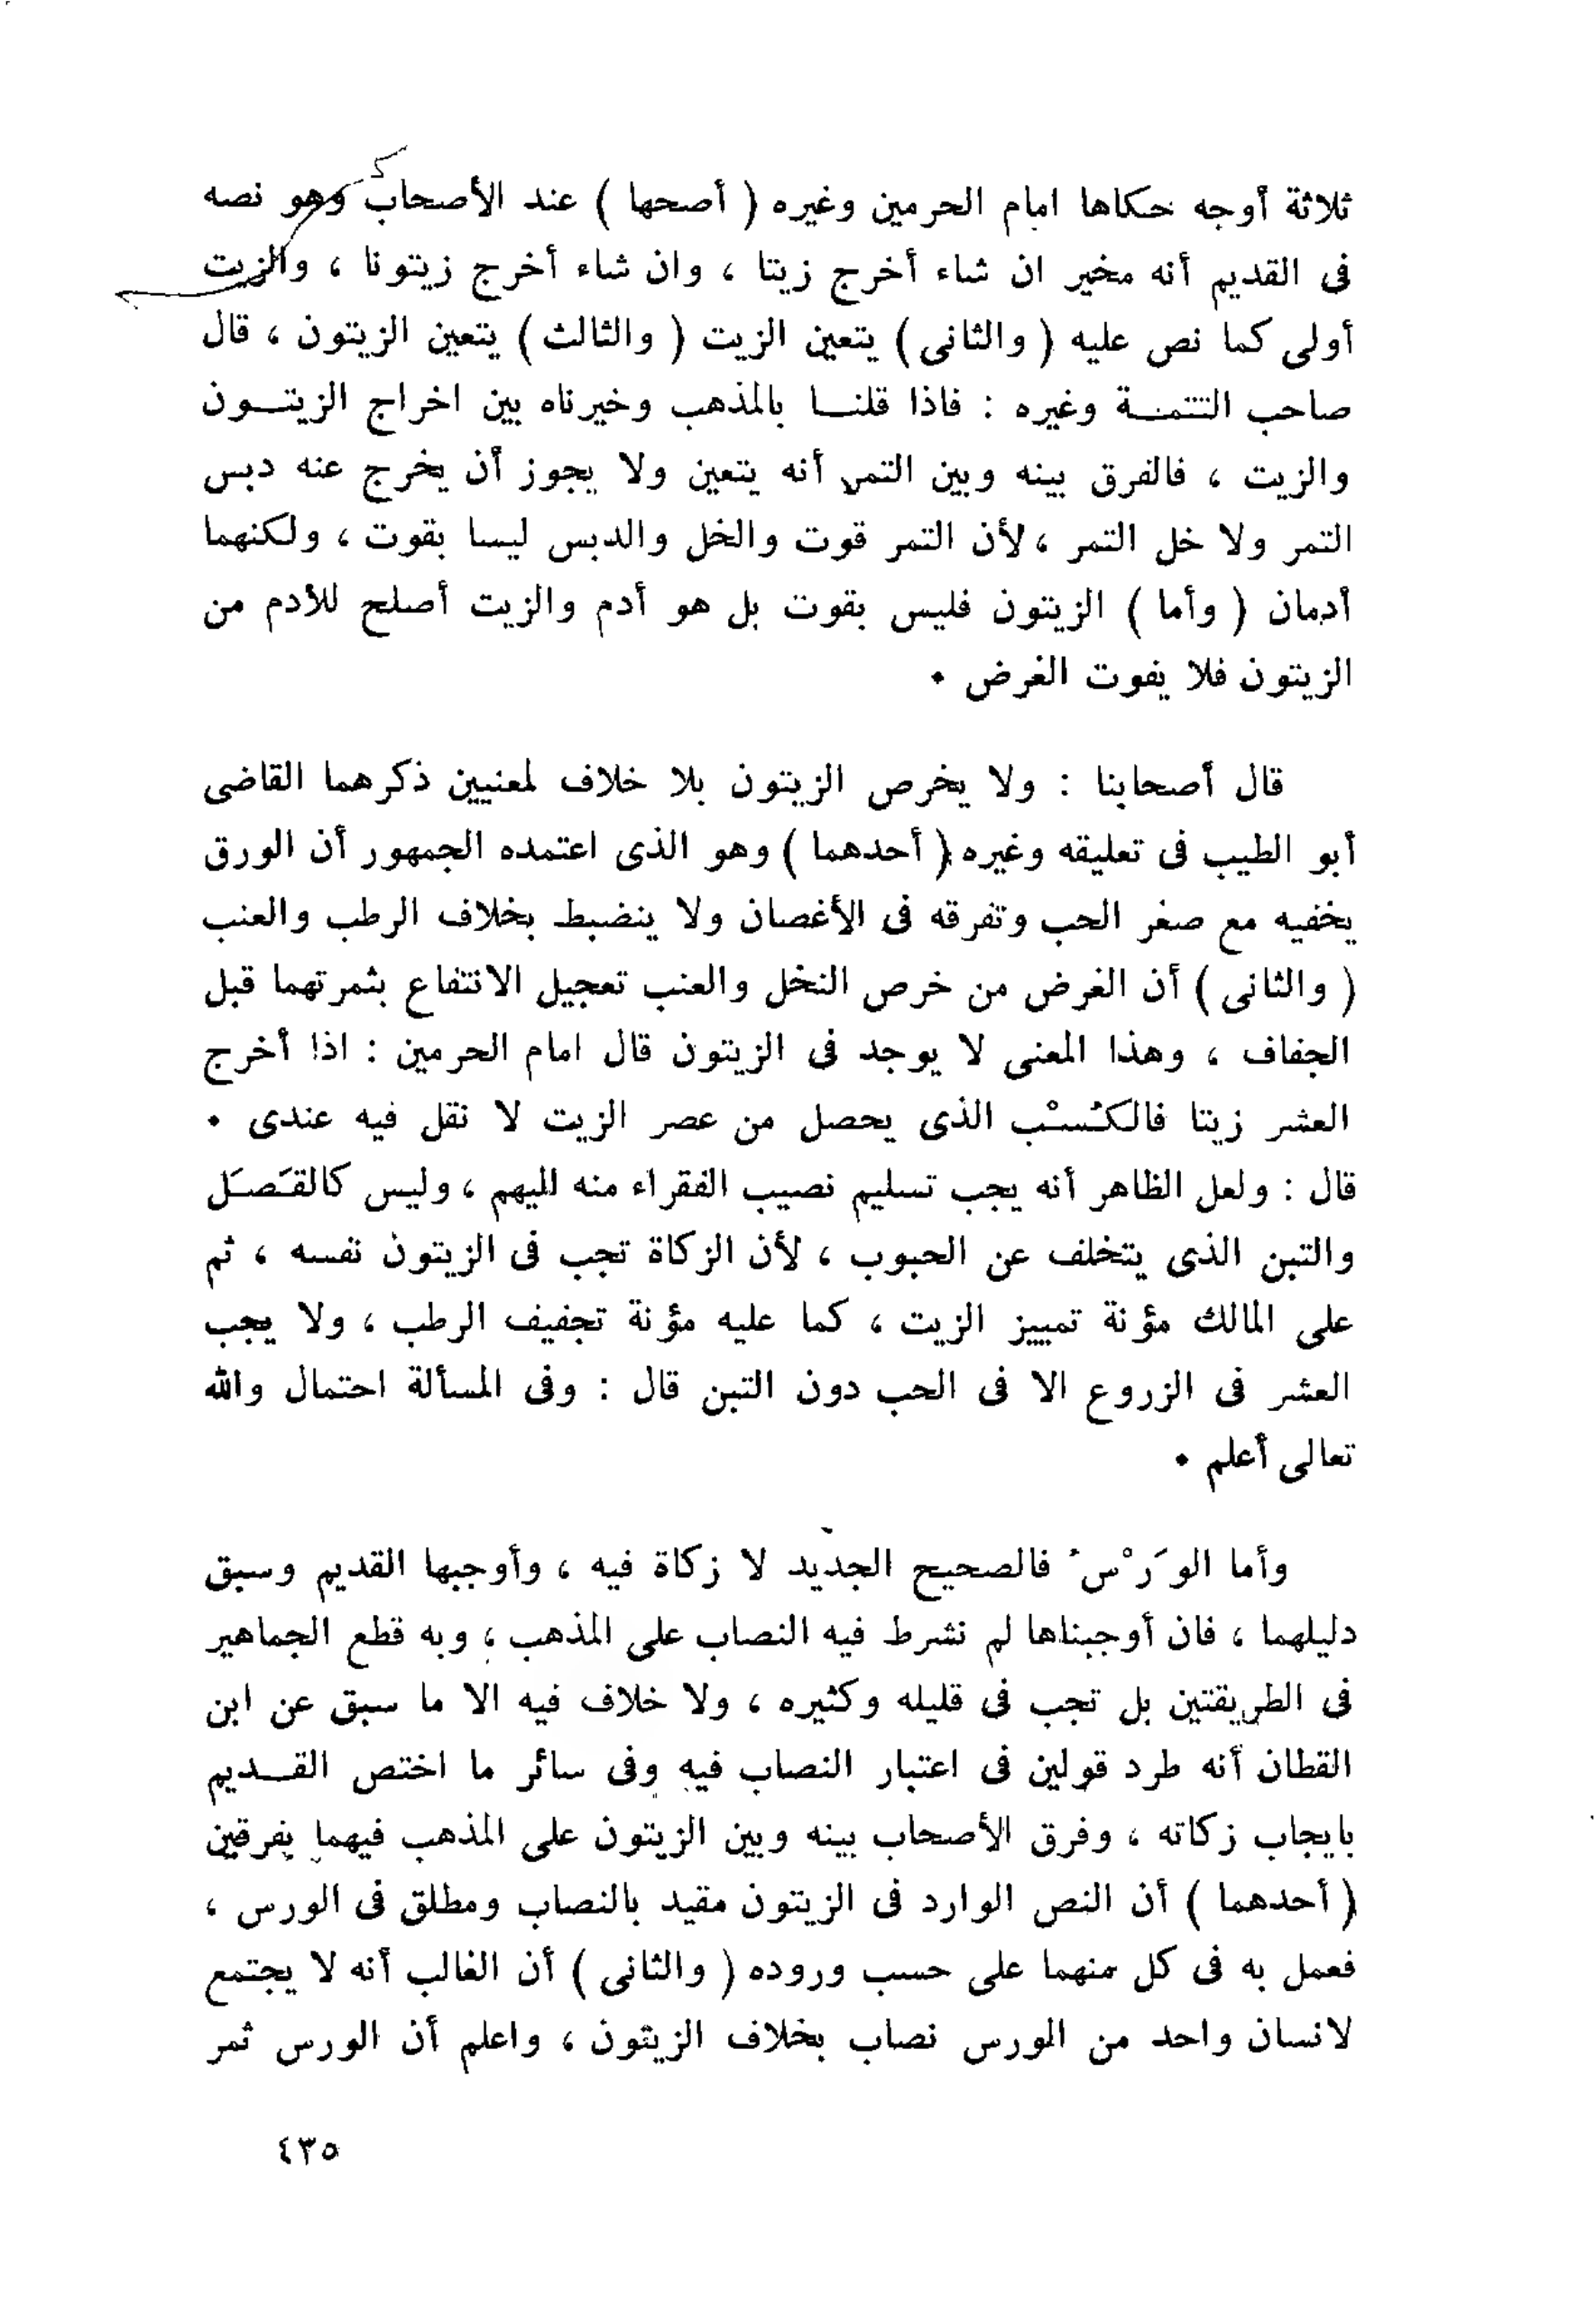 ثلاثة أوجه حكاها امام الحرمين وغيره ( أصحها ) عند الأصحاب وهو نصه
فى القديم أنه مخير ان شاء أخرج زيتا ، وان شاء أخرج زيتونا ، والزيت
أولى كما نص عليه ( والثانى ) يتعين الزيت ( والثالث ) يتعين الزيتون ، قال
صاحب التتمة وغيره : فاذا قلنا بالمذهب وخيرناه بين اخراج الزيتون
والزيت ، فالفرق بينه وبين التمر أنه يتعين ولا يجوز أن يخرج عنه دبس
التمر ولا خل التمر ، لأن التمر قوت والخل والدبس ليسا بقوت ، ولكنهما
أدمان ( وأما ) الزيتون فليس بقوت بل هو أدم والزيت أصلح للأدم من
الزيتون فلا يفوت الغرض •
قال أصحابنا : ولا يخرص الزيتون بلا خلاف لمعنيين ذكرهما القاضى
أبو الطيب فى تعليقه وغيره ( أحدهما ) وهو الذى اعتمده الجمهور أن الورق
يخفيه مع صغر الحب وتفرقه فى الأغصان ولا ينضبط بخلاف الرطب والعنب
( والثانى ) أن الغرض من خرص النخل والعنب تعجيل الانتفاع بثمرتهما قبل
الجفاف ، وهذا المعنى لا يوجد فى الزيتون قال امام الحرمين : اذا أخرج
العشر زيتا فالكُسْب الذى يحصل من عصر الزيت لا نقل فيه عندى •
قال : ولعل الظاهر أنه يجب تسليم نصيب الفقراء منه اليهم ، وليس كالقَصَل
والتبن الذى يتخلف عن الحبوب ، لأن الزكاة تجب فى الزيتون نفسه ، ثم
على المالك مؤنة تمييز الزيت ، كما عليه مؤنة تجفيف الرطب ، ولا يجب
العشر فى الزروع الا فى الحب دون التبن قال : وفى المسألة احتمال والله
تعالى أعلم •
وأما الوَرْسُ فالصحيح الجديد لا زكاة فيه ، وأوجبها القديم وسبق
دليلهما ، فان أوجبناها لم نشرط فيه النصاب على المذهب ، وبه قطع الجماهير
فى الطريقتين بل تجب فى قليله وكثيره ، ولا خلاف فيه الا ما سبق عن ابن
القطان أنه طرد قولين فى اعتبار النصاب فيه وفى سائر ما اختص القديم
بايجاب زكاته ، وفرق الأصحاب بينه وبين الزيتون على المذهب فيهما بفرقين
( أحدهما ) أن النص الوارد فى الزيتون مقيد بالنصاب ومطلق فى الورس ،
فعمل به فى كل منهما على حسب وروده ( والثانى ) أن الغالب أنه لا يجتمع
لانسان واحد من الورس نصاب بخلاف الزيتون ، واعلم أن الورس ثمر
٤٣٥